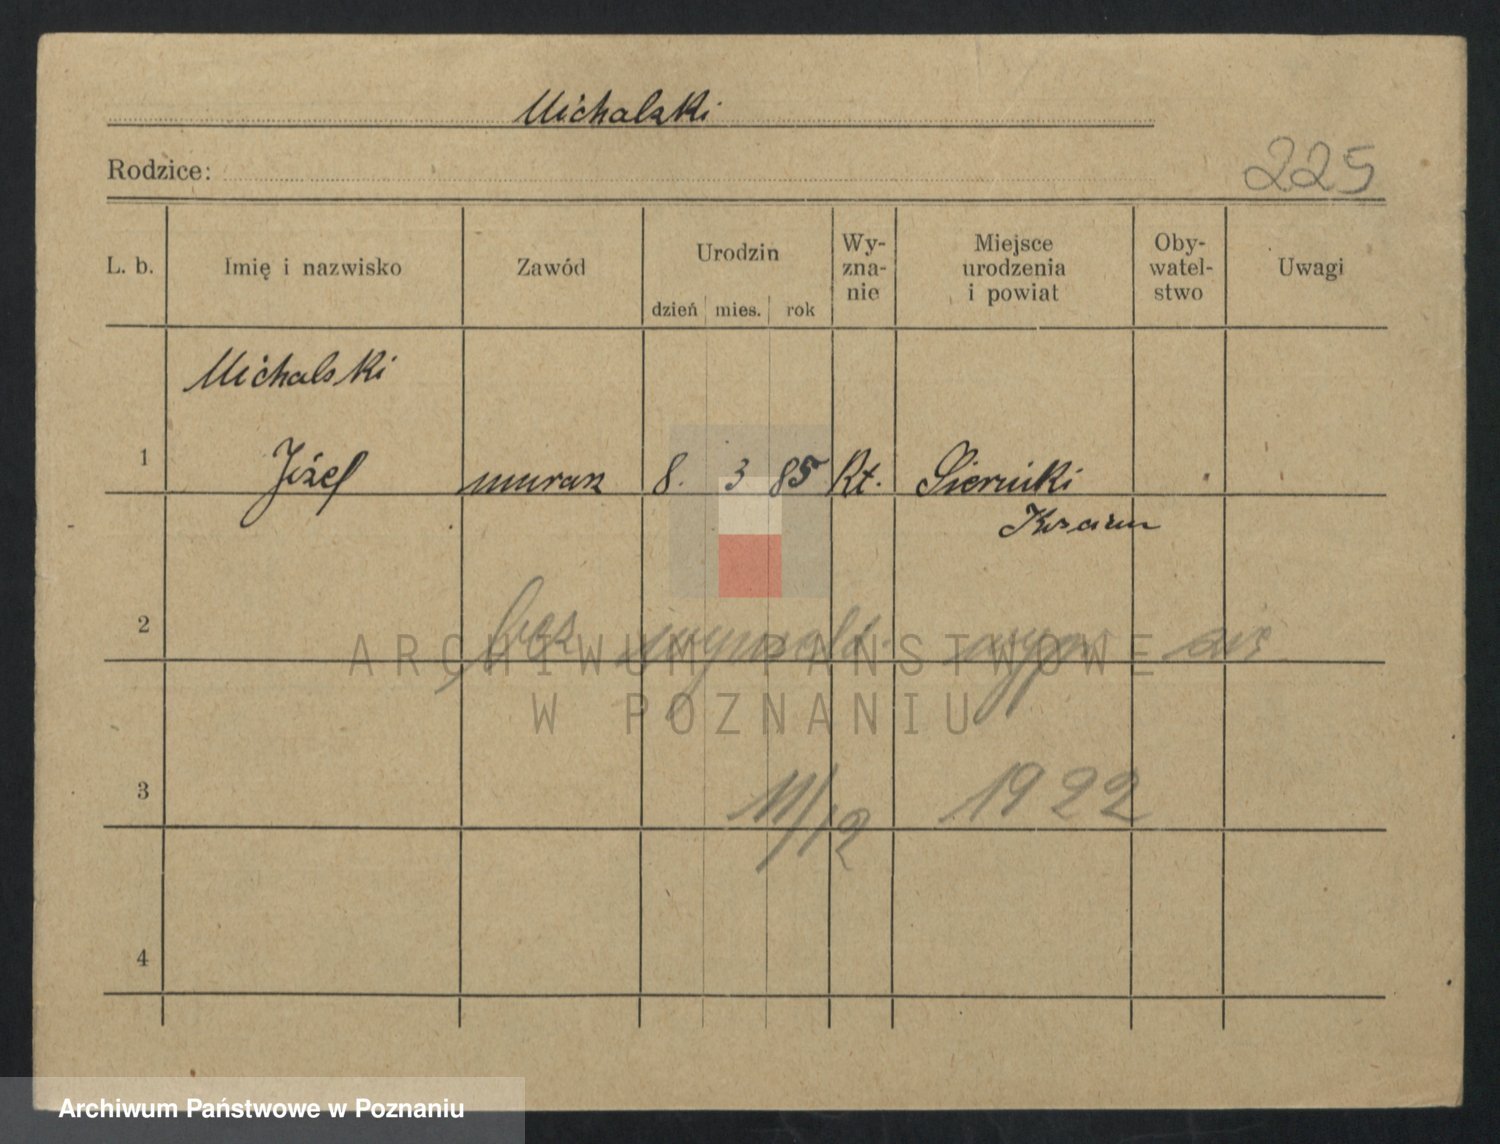 Michalski
Rodzice:
225
L. b. Imię i nazwisko Zawód Urodzin dzień mies. rok Wy-zna-nie Miejsce urodzenia i powiat Oby-watel-stwo Uwagi
Michalski
1 Józef murarz 8. 3 85 Rt. Sierniki
2 bez się
3 11/12 1922
4
ARCHIWUM PAŃSTWOWE
W POZNANIU
Archiwum Państwowe w Poznaniu